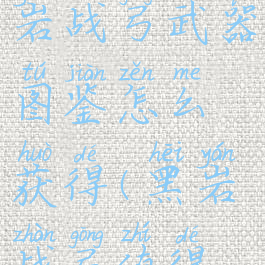 岩战弓武器
tú jiàn zěn me
图鉴怎么
huò dé hēi yán
获得(黑岩
zhàn gōng zhí dé
战弓值得